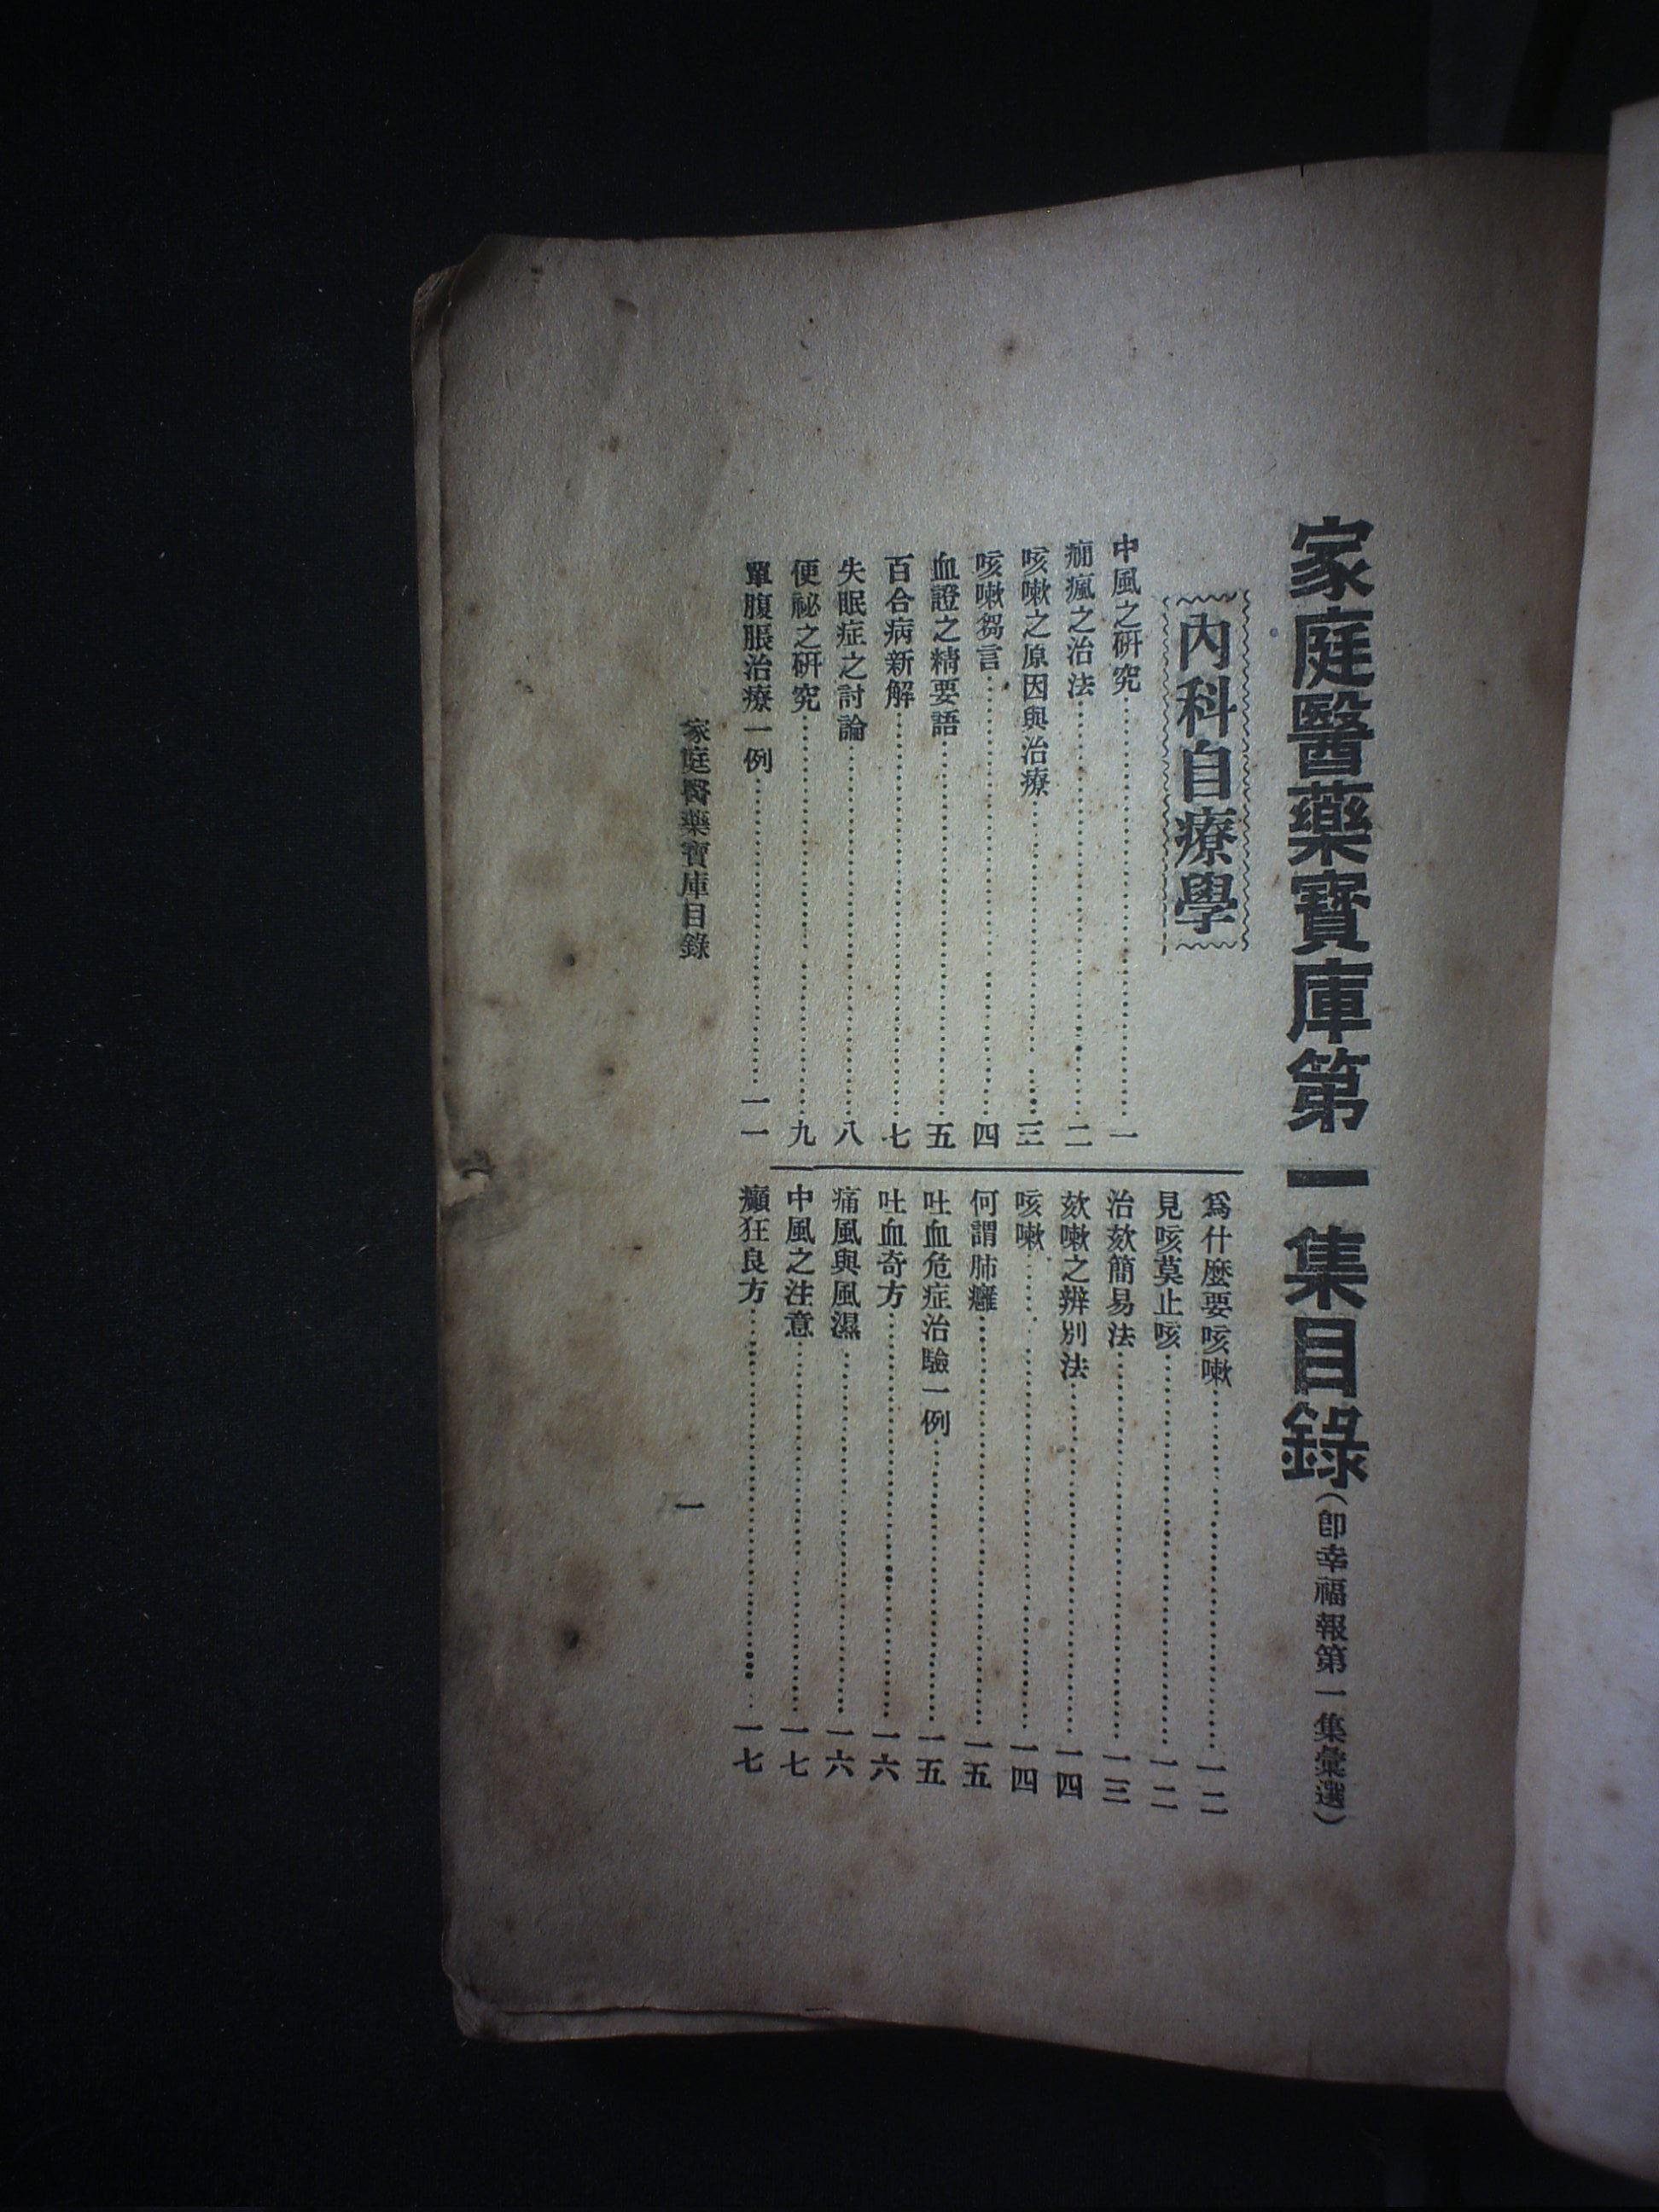 家庭醫藥寶庫第一集目錄(卽幸福報第一集彙選)
內科自療學
中風之研究……一
癇瘋之治法……二
咳嗽之原因與治療……三
咳嗽芻言……四
血證之精要語……五
百合病新解……七
失眠症之討論……八
便祕之研究……九
單腹脹治療一例……一一
爲什麼要咳嗽……一二
見咳莫止咳……一二
治欬簡易法……一三
欬嗽之辨別法……一四
咳嗽……一四
何謂肺癰……一五
吐血危症治驗一例……一五
吐血奇方……一六
痛風與風濕……一六
中風之注意……一七
癲狂良方……一七
家庭醫藥寶庫目錄
一